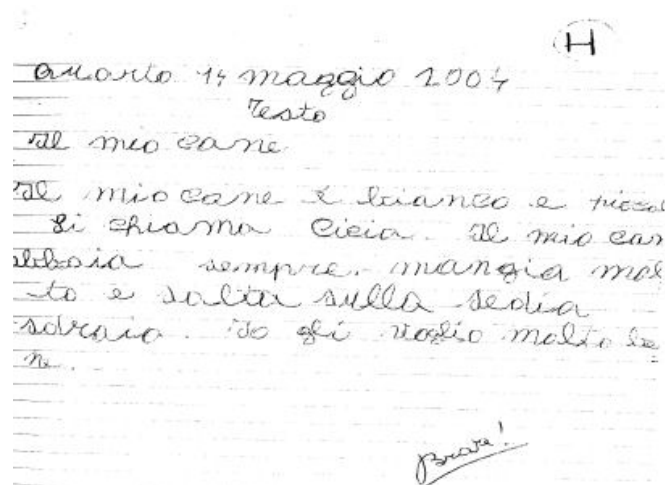 H
Quarto 14 maggio 2004
Testo
Il mio cane
Il mio cane è bianco e piccol
si chiama Cicia. Il mio can
abbaia sempre. mangia mol
to e salta sulla sedia
sdraio. Io gli voglio molto be
ne.
Brava!